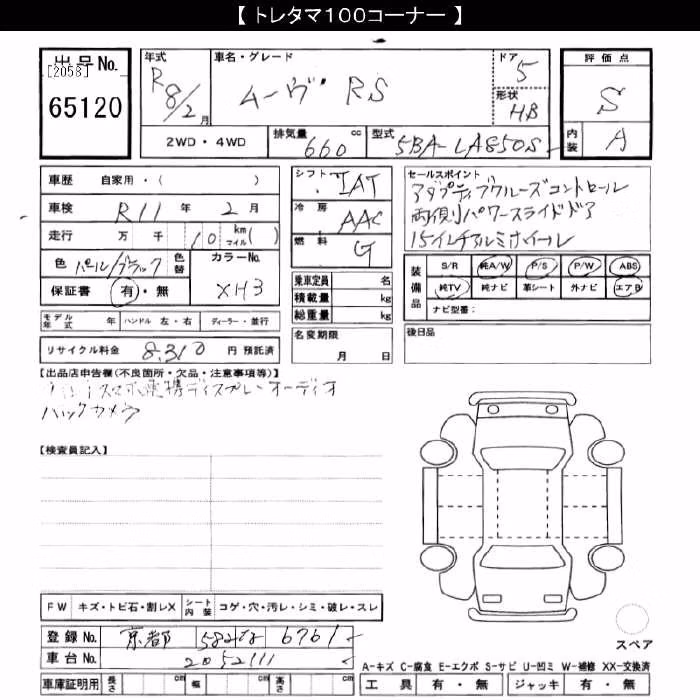 【 トレタマ100コーナー 】
出品No.
[2058]
65120
年式
R8/2月
車名・グレード
ムーヴ RS
ドア
5
形状
HB
評価点
S
内装
A
2WD・4WD
排気量 660 cc
型式 5BA-LA850S
車歴 自家用・( )
車検 R11年 2月
走行 万 千 10 km マイル( )
色 パール/ブラック 色替
カラーNo.
XH3
保証書 有・無
モデル年式 年 ハンドル 左・右 ディーラー・並行
リサイクル料金 8,310 円 預託済
シフト IAT
冷房 AAC
燃料 G
乗車定員 名
積載量 kg
総重量 kg
名変期限
月 日
セールスポイント
アダプティブクルーズコントロール
両側パワースライドドア
15インチアルミホイール
装備品
S/R 純A/W P/S P/W ABS
純TV 純ナビ 革シート 外ナビ エアB
ナビ型番:
後日品
【出品店申告欄(不良箇所・欠品・注意事項等)】
スマホ連携ディスプレーオーディオ
バックカメラ
【検査員記入】
FW キズ・トビ石・割レX シート内装 コゲ・穴・汚レ・シミ・破レ・スレ
登録No. 京都 582 な 6761
車台No. 2052111
車庫証明用 長さ cm 幅 cm 高さ cm
スペア
A-キズ C-腐食 E-エクボ S-サビ U-凹ミ W-補修 XX-交換済
工具 有・無 ジャッキ 有・無